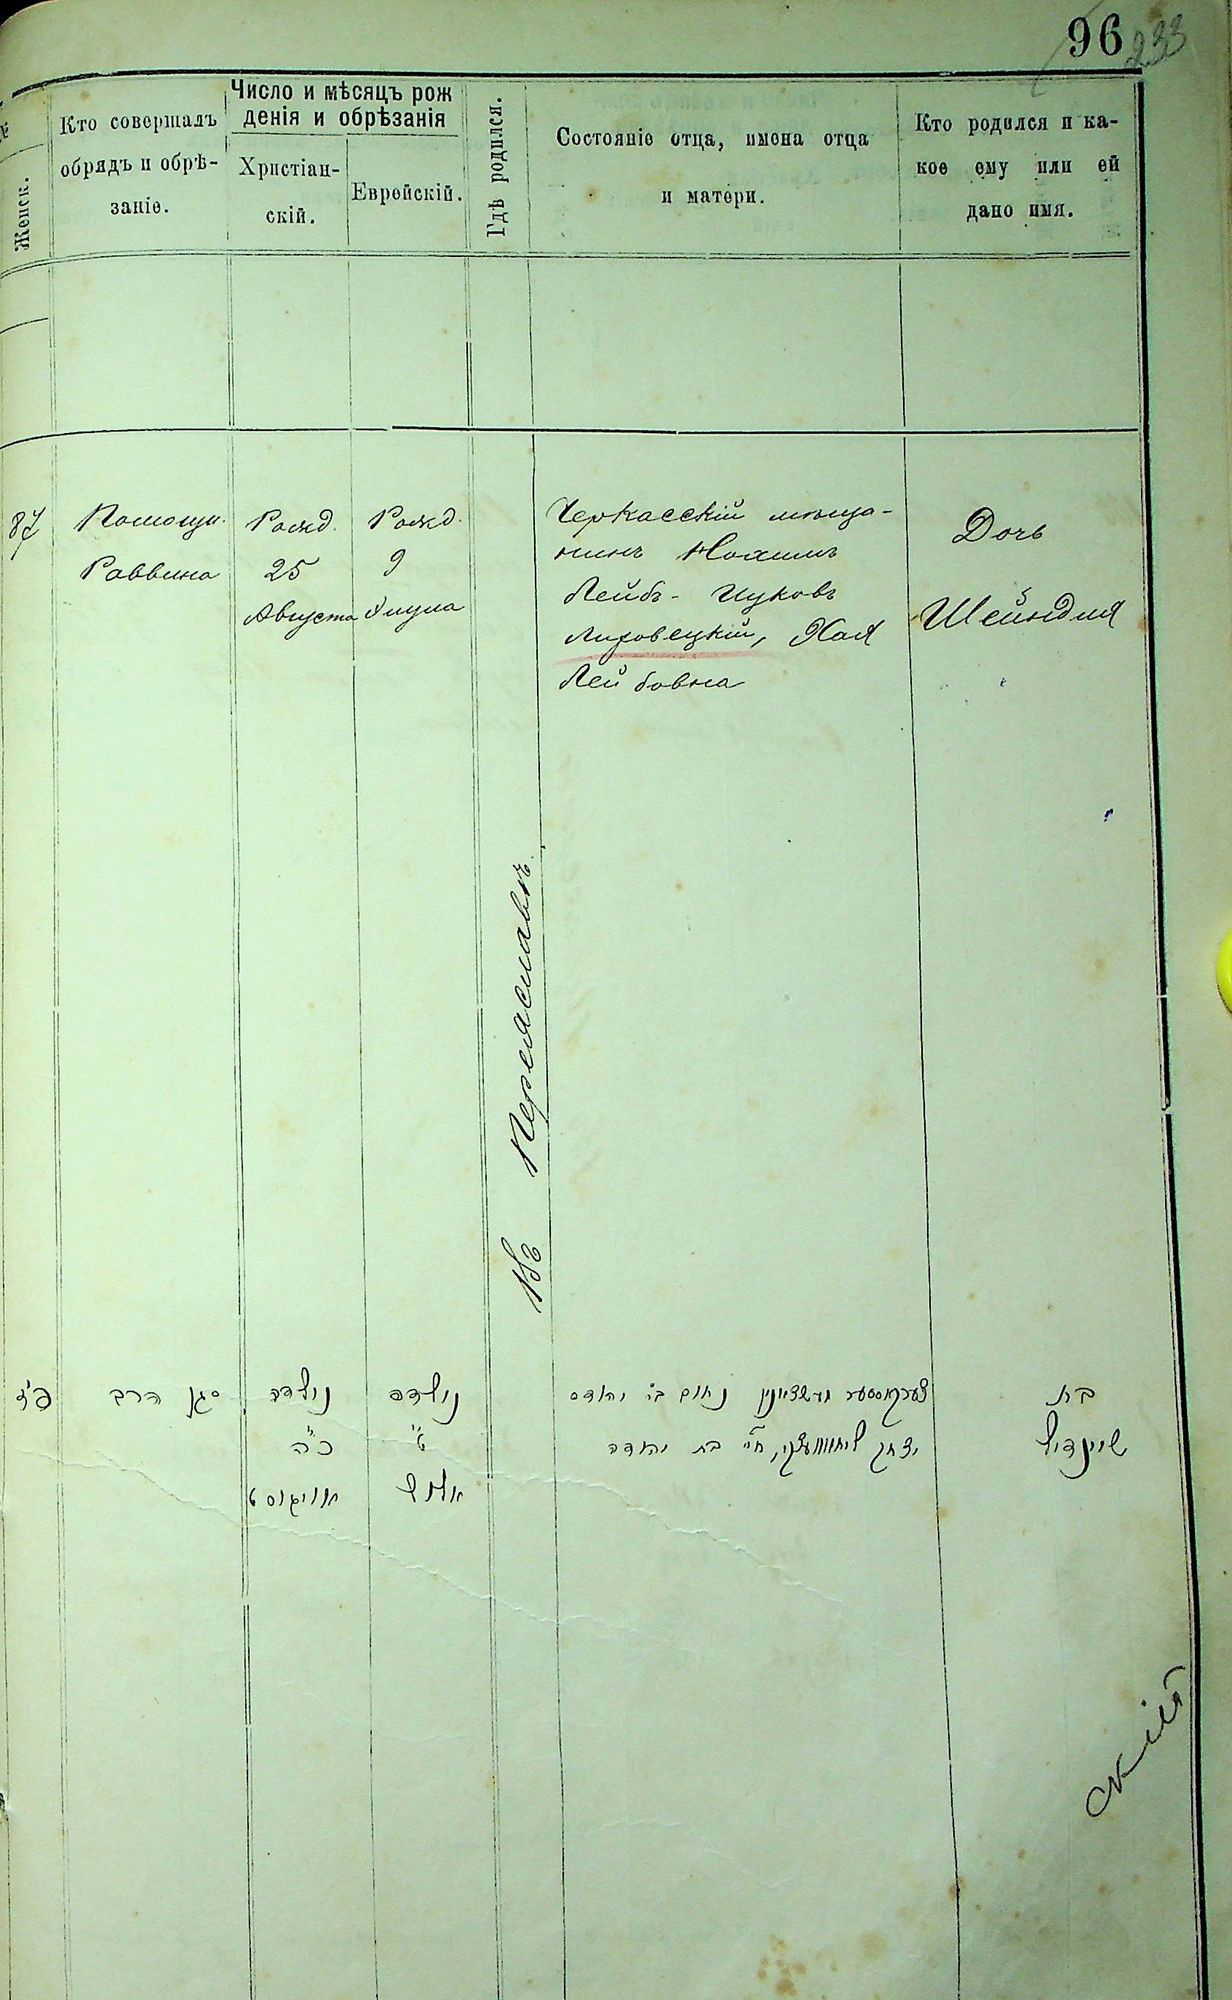 96
233
№
Женск.
Кто совершалъ
обрядъ и обрѣ-
заніе.
Число и мѣсяцъ рож
денія и обрѣзанія
Христіан-
скій.
Еврейскій.
Гдѣ родился.
Состояніе отца, имена отца
и матери.
Кто родился и ка-
кое ему или ей
дано имя.
87
Помощн.
Раввина
Рожд.
25
Августа
Рожд.
9
Элула
Въ Переяславѣ.
Черкасскій мѣща-
нинъ Нохимъ
Лейбъ-Ицковъ
Лиховецкій, Хая
Лейбовна
Дочь
Шейндля
פ"ז
סגן הרב
נולדה
כ"ה
אויגוסט
נולדה
ט"
אלול
נחום בי יהודה
יצחק, חי' בת יהודה
בת
שיינדיל
скій